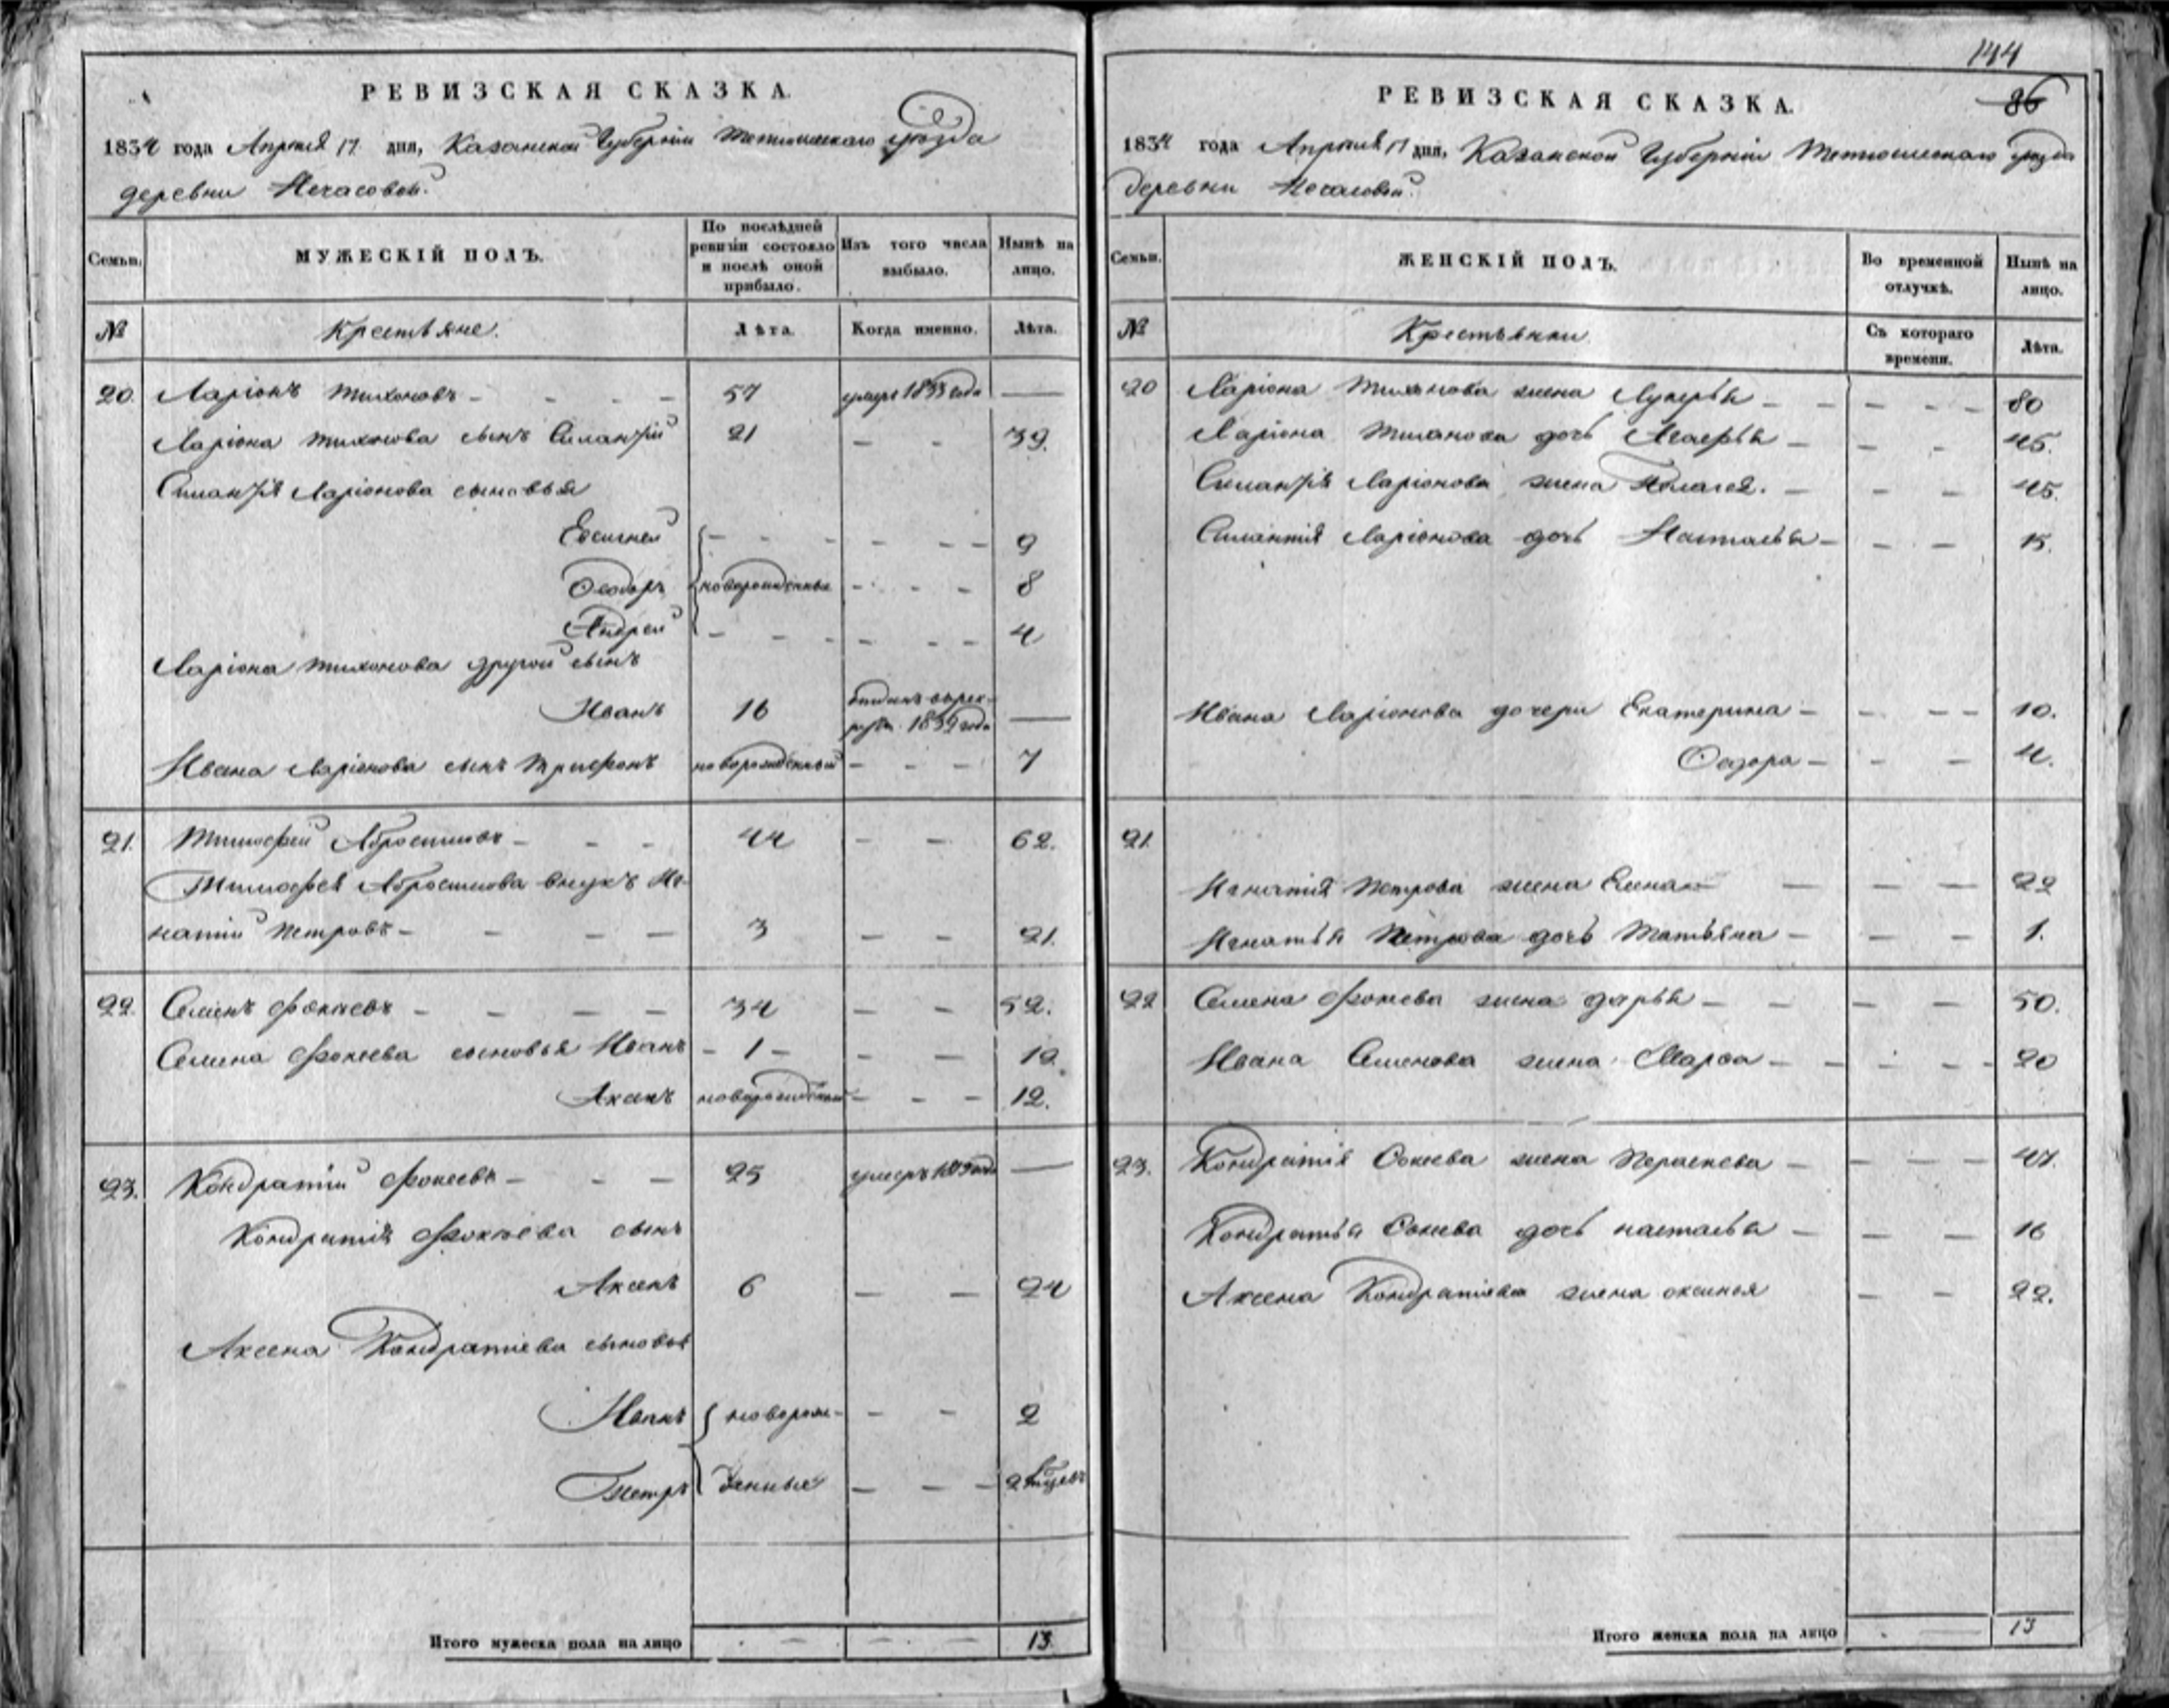 РЕВИЗСКАЯ СКАЗКА.
1834 года Апреля 17 дня, Казанской Губернии Тетюшскаго уезда
деревни Нечасовой.
Семьи.
МУЖЕСКІЙ ПОЛЪ.
По послѣдней ревизіи состояло и послѣ оной прибыло.
Изъ того числа выбыло.
Нынѣ на лицо.
№
Крестьяне.
Лѣта.
Когда именно.
Лѣта.
20. Ларіонъ Тихоновъ - - - - 57 умеръ 1833 года —
Ларіона Тихонова сынъ Силантій 21 - - 39.
Силантія Ларіонова сыновья
Евсигней - - - - - - 9
Ѳеодоръ новорожденные - - - 8
Андрей - - - - - - 4
Ларіона Тихонова другой сынъ
Иванъ 16 1832 года —
Ивана Ларіонова сынъ Трифонъ новорожденный - - - 7
21. Тимофей Абросимовъ - - - 44 - - 62.
Тимофея Абросимова внукъ Иг-
натій Петровъ - - - - 3 - - 21.
22. Семенъ Фокѣевъ - - - - 34 - - 52.
Семена Фокеева сыновья Иванъ - 1 - - - 19.
Аксенъ новорожденной - - - 12.
23. Кондратій Фокеевъ - - - 25 умеръ года —
Кондратія Фокѣева сынъ
Аксенъ 6 - - 24
Аксена Кондратіева сыновья
Иванъ новорож- - - 2
Петръ денные - - - 2
Итого мужеска пола на лицо - - - 13.
144
86
РЕВИЗСКАЯ СКАЗКА.
1834 года Апреля 17 дня, Казанской Губерніи Тетюшскаго уезда
деревни Нечасовой.
Семьи.
ЖЕНСКІЙ ПОЛЪ.
Во временной отлучкѣ.
Нынѣ на лицо.
№
Крестьянки.
Съ котораго времени.
Лѣта.
20 Ларіона Тихонова жена Лукерья - - - - - 80
Ларіона Тихонова дочь - - - 45.
Силантія Ларіонова жена Пелагея. - - - 45.
Силантія Ларіонова дочь Настасья - - - 15.
Ивана Ларіонова дочери Екатерина - - - - 10.
Ѳедора - - - 4.
21.
Игнатія Петрова жена Елена - - - 22
Игнатья Петрова дочь Татьяна - - - 1.
22 Семена Фокеева жена дарья - - - - 50.
Ивана Семенова жена Марѳа - - - - - 20
23. Кондратія Ѳокеева жена Пераскева - - - - 47.
Кондратья Ѳокеева дочь настасья - - - 16
Аксена Кондратіева жена оксинея - - 22.
Итого женска пола на лицо - - 13